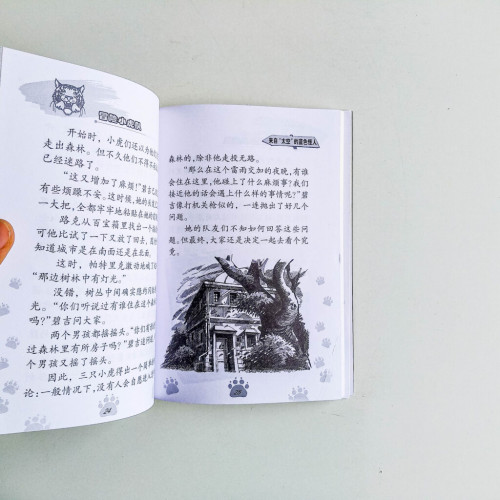 冒险小虎队
开始时,小虎们还以为他们
走出森林。但不久他们不得不
已经迷路了。
“这又增加了麻烦!”碧吉
有些烦躁不安。这时候,她的头
一大把,全都牢牢地粘贴在她的
路克从百宝箱里找出一个
可他比试了一下又放了回去,
知道城市是在南面还是在北面。
这时,帕特里克激动地喊
“那边树林中有灯光。”
没错,树丛中间确实隐约
光。“你们听说过有谁住在这个森
吗?”碧吉问大家。
两个男孩都摇摇头。“你们看
过森林里有所房子吗?”碧吉
个男孩又摇了摇头。
因此,三只小虎得出一个
论:一般情况下,没有人会自愿
24
来自“太空”的蓝色怪人
森林的,除非他走投无路。
“那么在这个雷雨交加的夜晚,有谁
会住在这里,他碰上了什么麻烦事?我们
接近他的话会遇上什么样的事情呢?”碧
吉像打机关枪似的,一连抛出了好几个
问题。
她的队友们不知如何回答这些问
题。但最终,大家还是决定一起去看个究
竟。
25